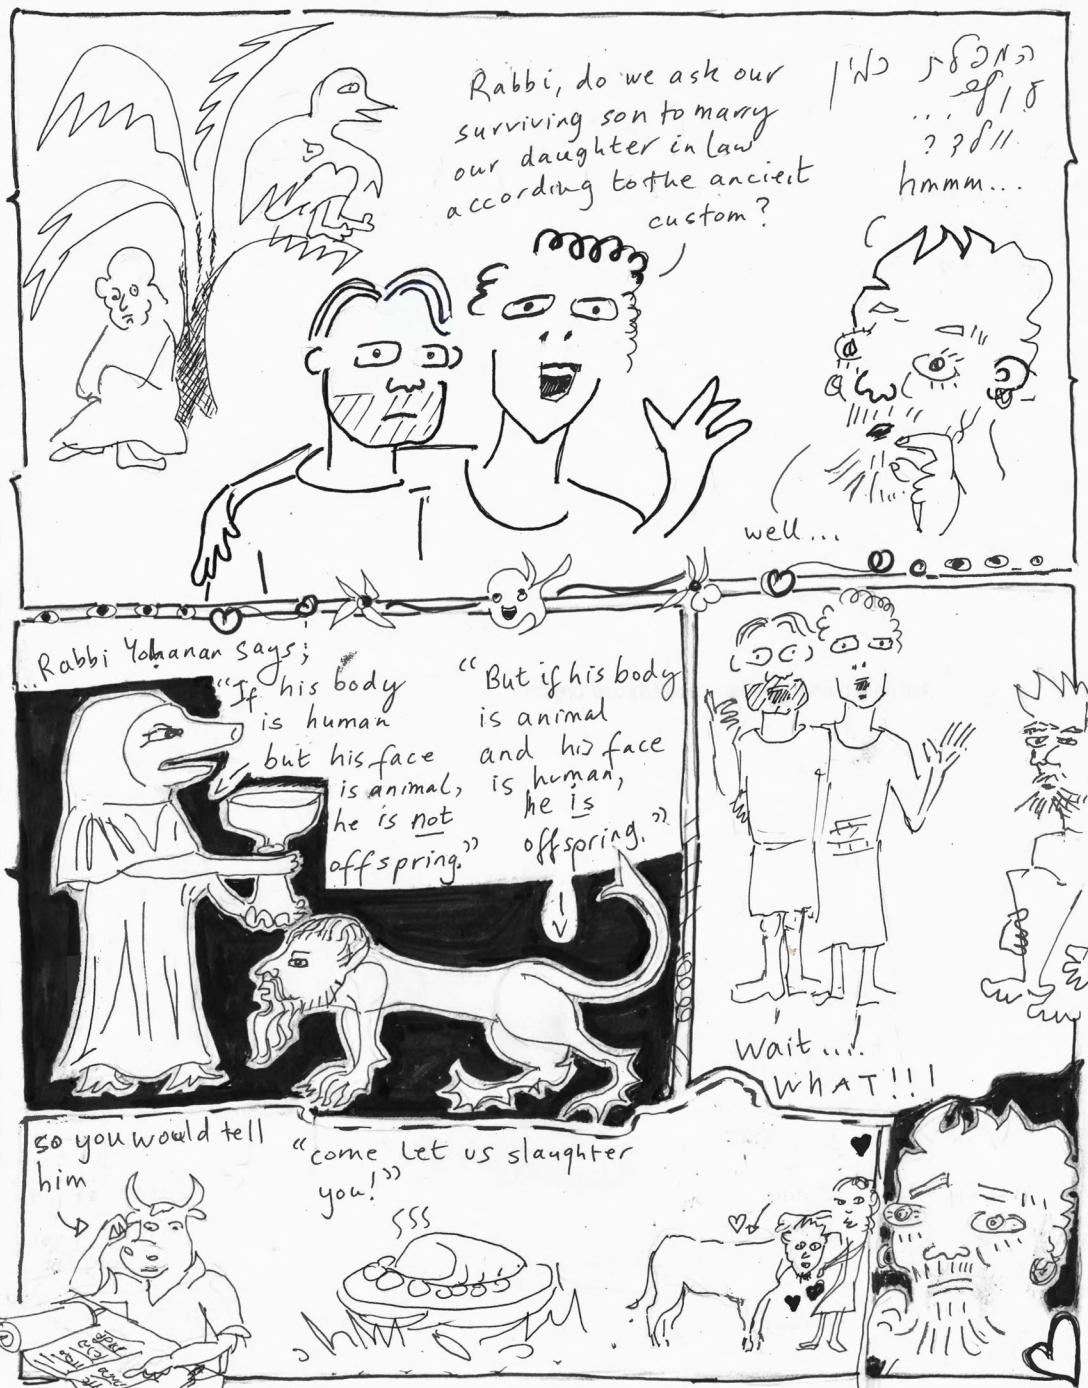 Rabbi, do we ask our
surviving son to marry
our daughter in law
according to the ancient
custom?
המפלת כמין
עוף ...
וולד ?
hmmm...
well...
Rabbi Yohanan says;
"If his body
is human
but his face
is animal,
he is not
offspring."
"But if his body
is animal
and his face
is human,
he is
offspring."
wait....
WHAT!!!
so you would tell
him
"come let us slaughter
you!"